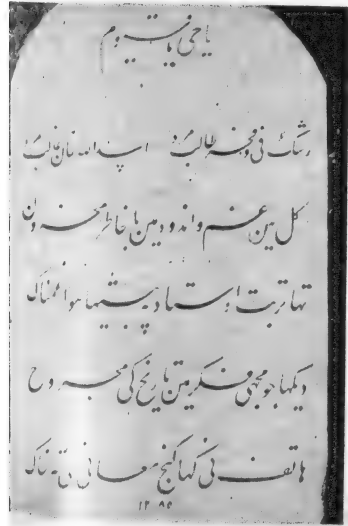 یا حی یا قیوم
رشک عرفی و فخر طالب مرد اسد اللہ خان غالب مرد
کل میں غم و اندوہ میں با خاطر محزوں
تھا تربت اوستاد پہ بیٹھا ہوا غمناک
دیکھا جو مجھی فکر میں تاریخ کی مجروح
ہاتف نی کہا گنج معانی ہی تہ خاک
۱۲۸۵